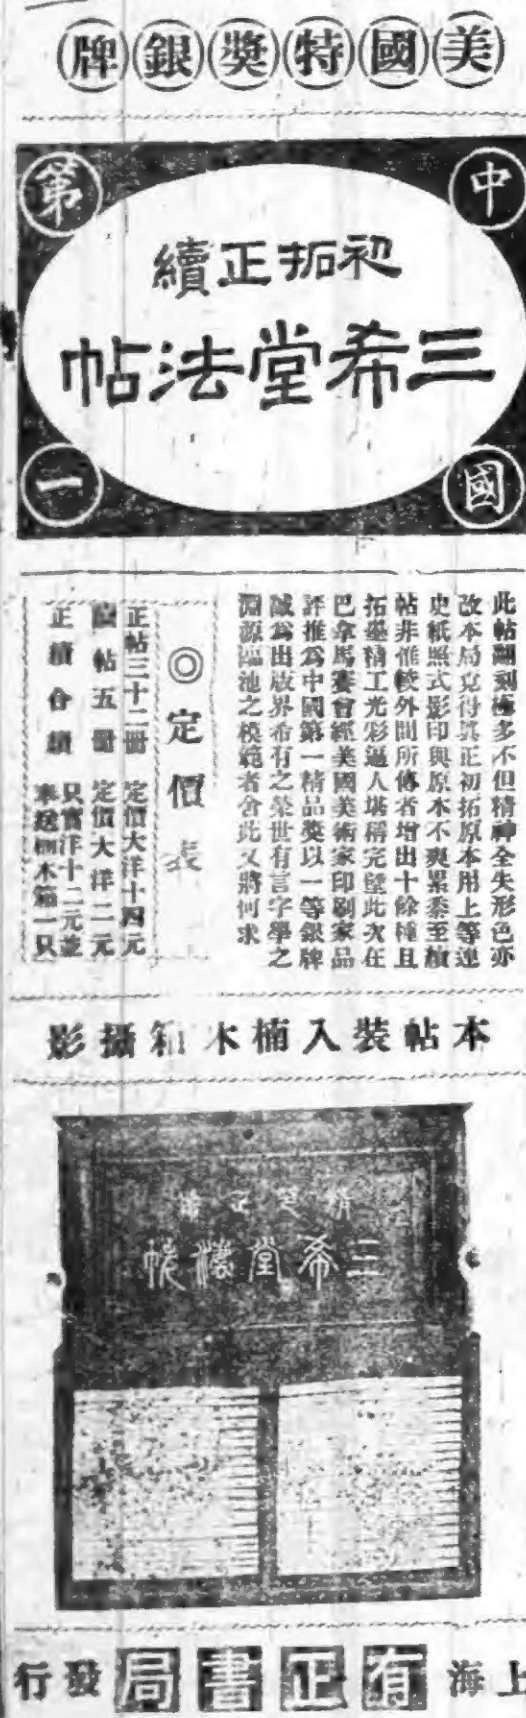 美國特獎銀牌
中國第一
初拓正續
三希堂法帖
此帖翻刻極多不但精神全失形色亦
改本局覓得眞正初拓原本用上等連
史紙照式影印與原本不爽累黍至續
帖非惟較外間所傳者增出十餘種且
拓墨精工光彩逼人堪稱完璧此次在
巴拿馬賽會經美國美術家印刷家品
評推爲中國第一精品獎以一等銀牌
誠爲出版界希有之榮世有言字學之
淵源臨池之模範者舍此又將何求
◎定價表
正帖三十二冊 定價大洋十四元
續帖五冊 定價大洋二元
正續合購 只售洋十二元並
奉送楠木箱一只
本帖裝入楠木箱攝影
初 正續
三希堂法帖
上海有正書局發行